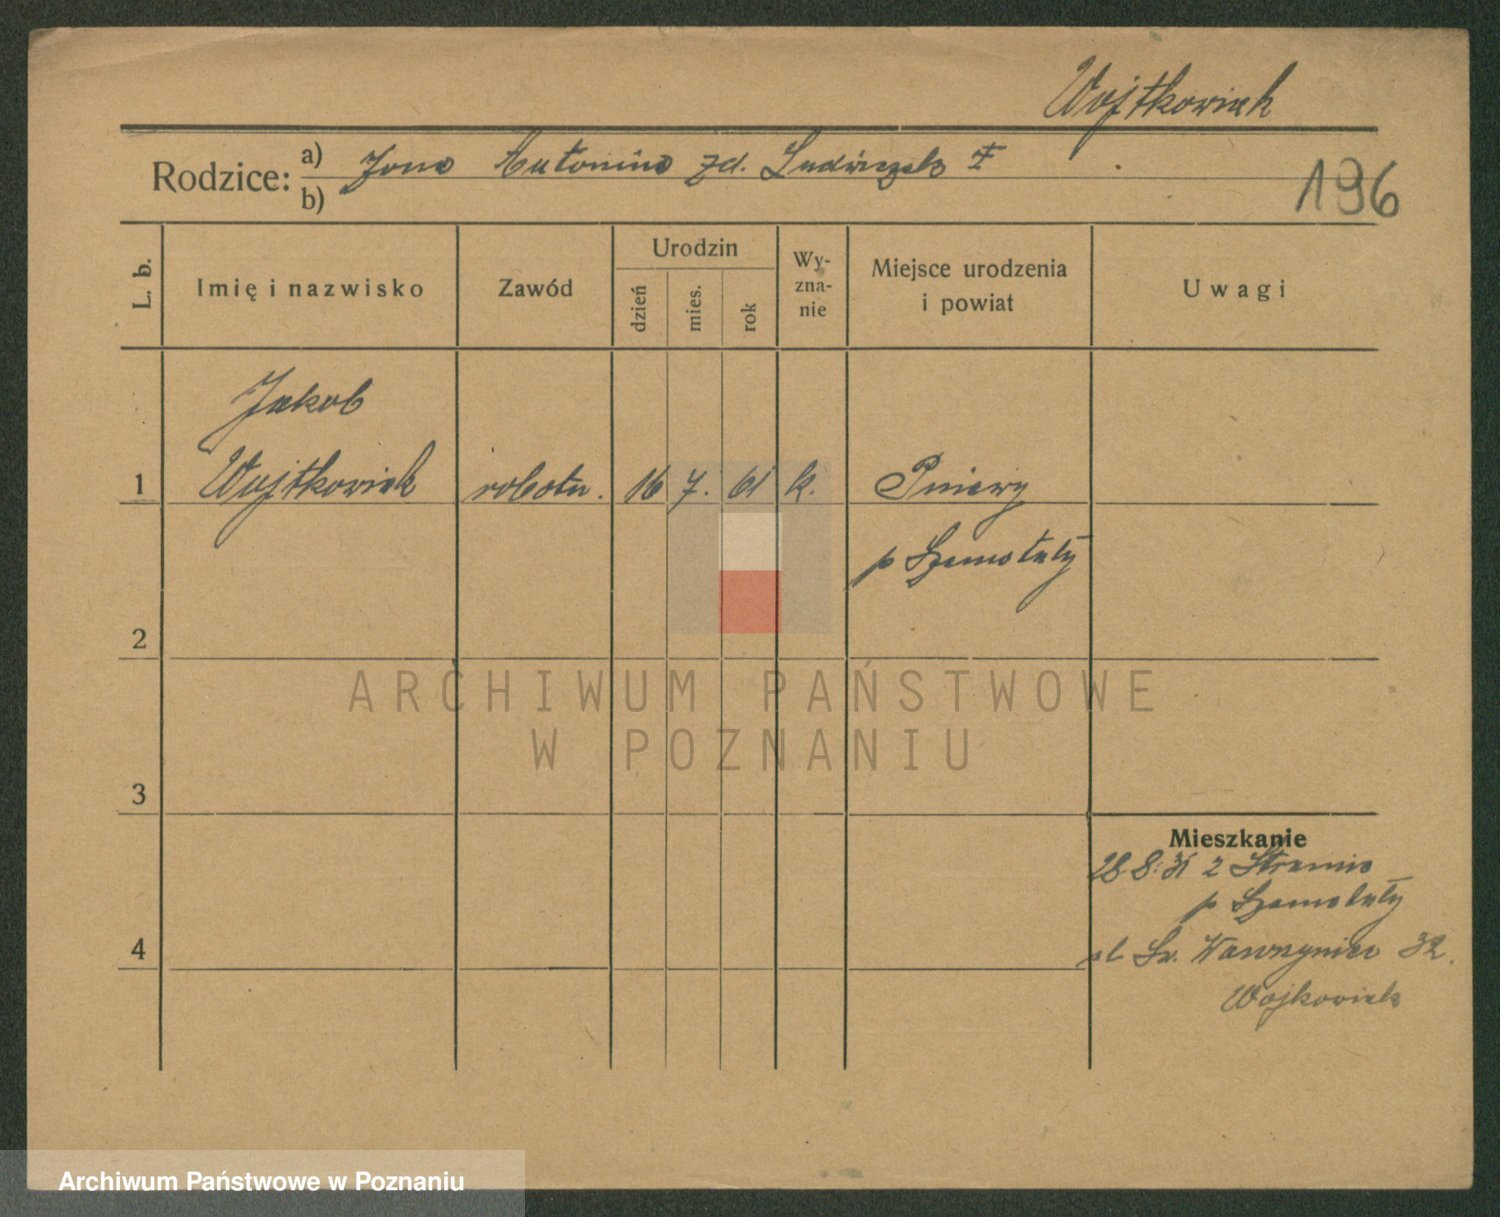 Wojtkowiak
Rodzice: a) Jana Antonina zd. Ludwiczak
b)
196
L. b.
Imię i nazwisko
Zawód
Urodzin
dzień
mies.
rok
Wy-
zna-
nie
Miejsce urodzenia
i powiat
Uwagi
Jakob
1 Wojtkowiak robotn. 16 7. 61 k. Pniewy
p Szamotuły
2
3
ARCHIWUM PAŃSTWOWE
W POZNANIU
Mieszkanie
28.8.31 z
p Szamotuły
4
ul. Św. Wawrzyniec 32.
Wojkowiak
Archiwum Państwowe w Poznaniu